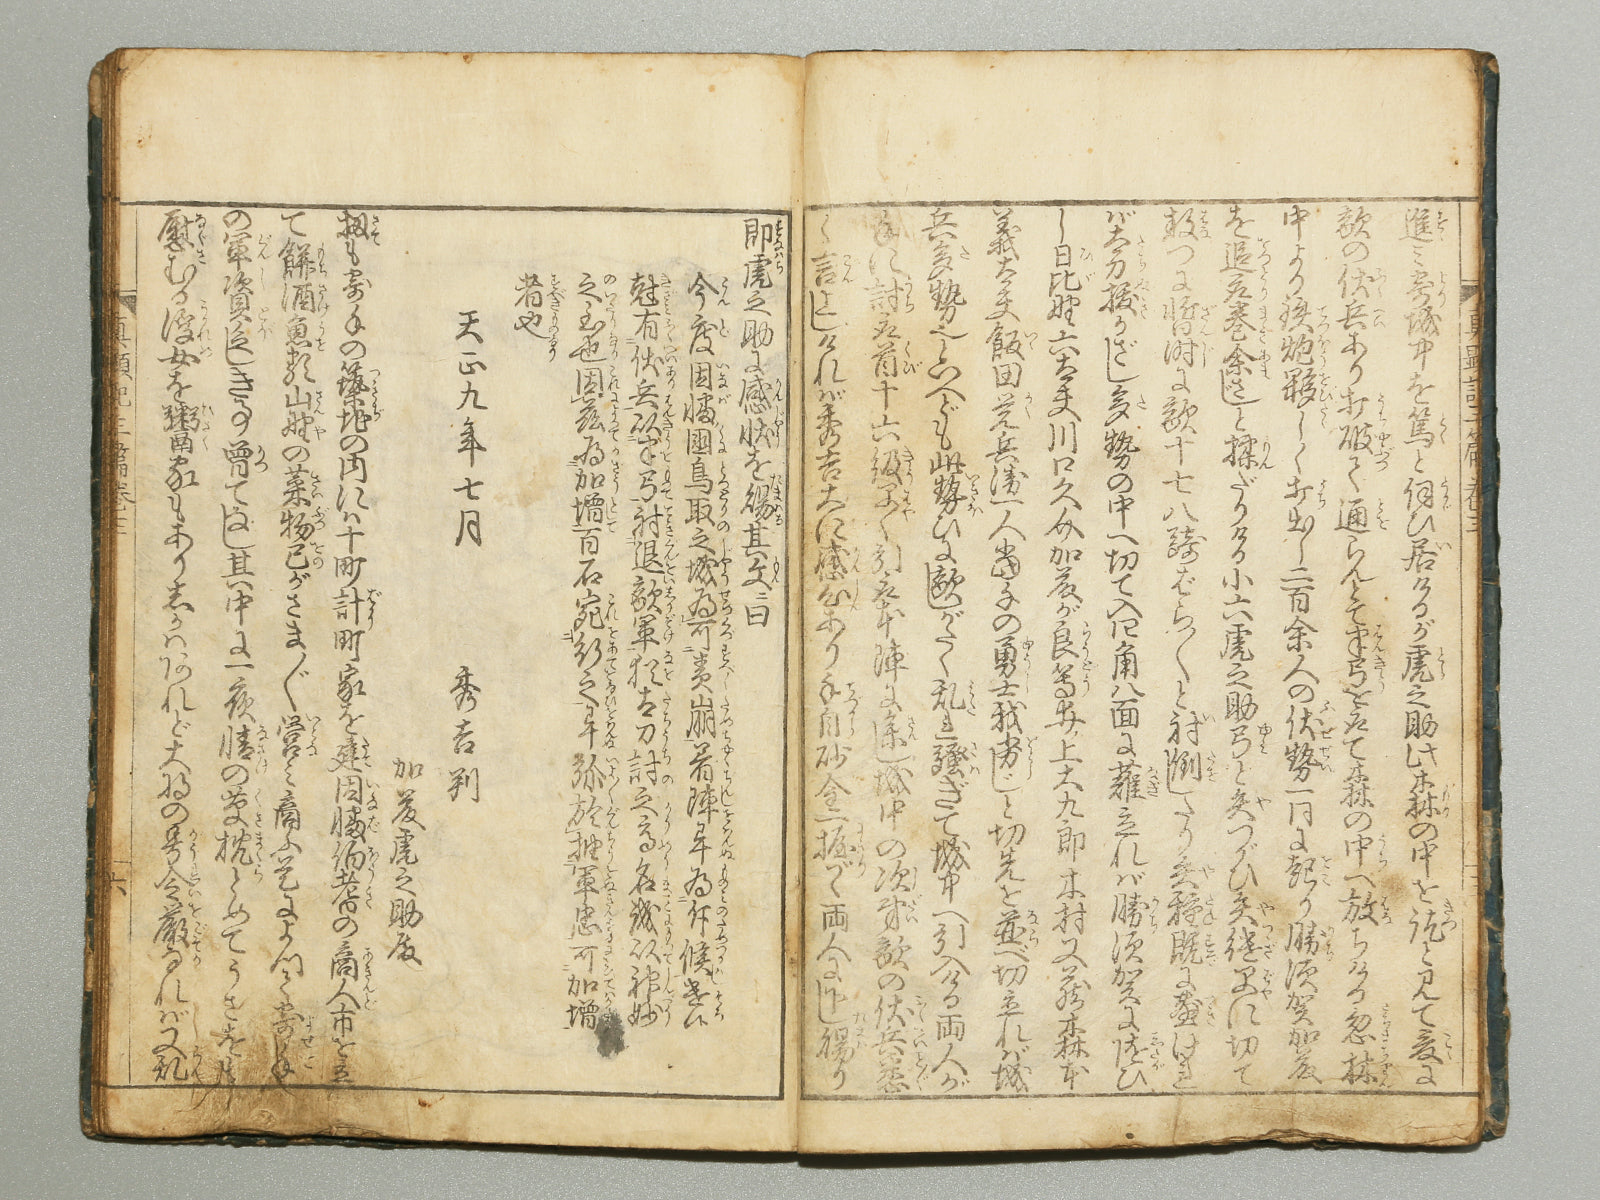 進ミ寄城中を篤と伺ひ居けるが虎之助此森の中を屹と見て爰に
敵の伏兵あり打破て通らんとて半弓を以て森の中へ放ちける忽林
中より鉄炮夥しく打出し二百余人の伏勢一同に起り勝須賀加藤
を追取巻余さじと揉だりける小六虎之助弓と矢つがひ矢継早に切て
放つに暫時に敵十七八騎ばら〱と射倒したり矢種既に盡ければ
太刀抜かざし多勢の中へ切て入四角八面に薙立れば勝須賀に随ひ
し日比野六太夫川口久助加藤が良等井上大九郎木村又蔵森本
義太夫飯田覚兵衛一人當千の勇士我劣じと切先を並べ切立れば城
兵多勢といへども此勢ひに敵しがたく乱れ騒ぎて城中へ引入ける両人が
手に討取首十六級早く引取本陣に帰城中の次第敵の伏兵悉
く言上しければ秀吉大に感心あり手自砂金一握づゝ両人に賜り
即虎之助に感状を賜其文ニ曰
今度因幡國鳥取之城為可責崩着陣早為斥候遣候
尅有伏兵以半弓射退敵軍抜太刀討之高名誠以神妙
之至也因茲為加増百石宛行之早弥於抽軍忠可加増
者也
天正九年七月　秀吉判
加藤虎之助殿
扨も寄手の築地の内には十町計町家を建因幡伯耆の商人市を立
て餅酒魚類山野の菜物己がさま〲営ミ商ふ是によつて寄手
の軍資乏しき事曾てなし其中に一夜情の草枕しめてうさを
慰むる浮女を粥置家もあり去かはあれど大将の号令厳なれば又乱
真顕記三篇巻三
六